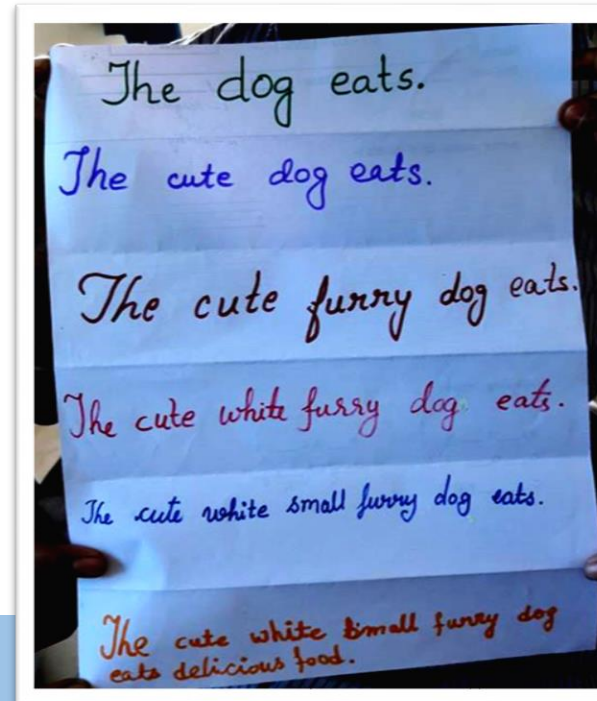 The dog eats.
The cute dog eats.
The cute furry dog eats.
The cute white furry dog eats.
The cute white small furry dog eats.
The cute white small furry dog
eats delicious food.